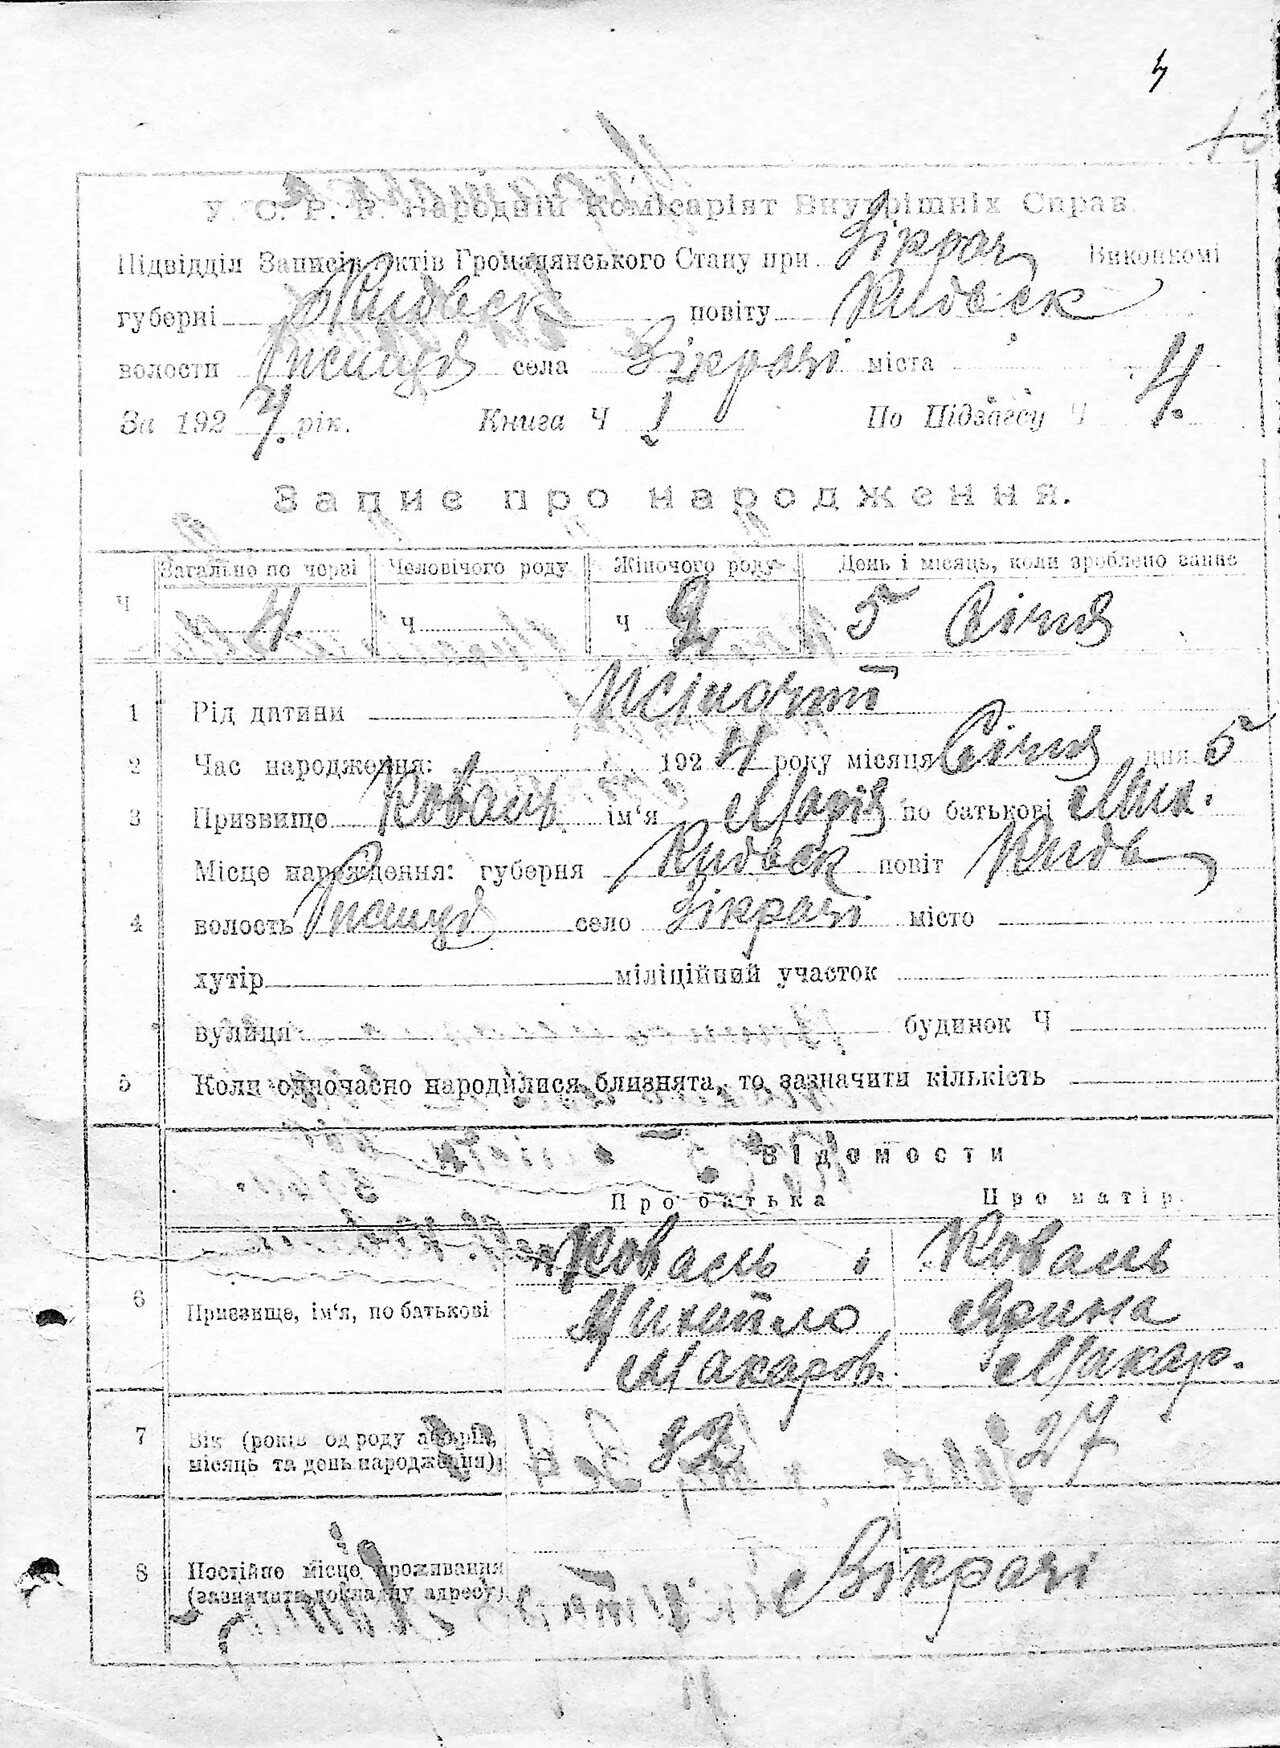 4
У. С. Р. Р. Народній Комісаріят Внутрішніх Справ
Підвідділ Записів Актів Громадянського Стану при Зікрач Виконкомі
губерні Київськ повіту Київськ
волости Ржищів села Зікрачі міста
За 1924 рік. Книга Ч 1 По Підзагсу Ч 4.
Запис про народження.
Загально по черзі Человічого роду Жіночого роду День і місяць, коли зроблено запис
Ч 4. Ч Ч 2 5 Січня
1 Рід дитини Жіночий
2 Час народження: 1924 року місяця Січня дня 5
3 Призвище Коваль ім'я Марія по батькові Мих.
Місце народження: губерня Київськ повіт Київ
4 волость Ржищів село Зікрачі місто
хутір міліційний участок
вулиця будинок Ч
5 Коли одночасно народилися близнята, то зазначити кількість
Відомости
Про батька Про матір
Коваль Коваль
6 Призвище, ім'я, по батькові Михайло Ярина
Макаров. Макар.
7 Вік (років од роду або рік, 32 27
місяць та день народження)
8 Постійне місце проживання Зікрачі
(зазначить докладну адресу)